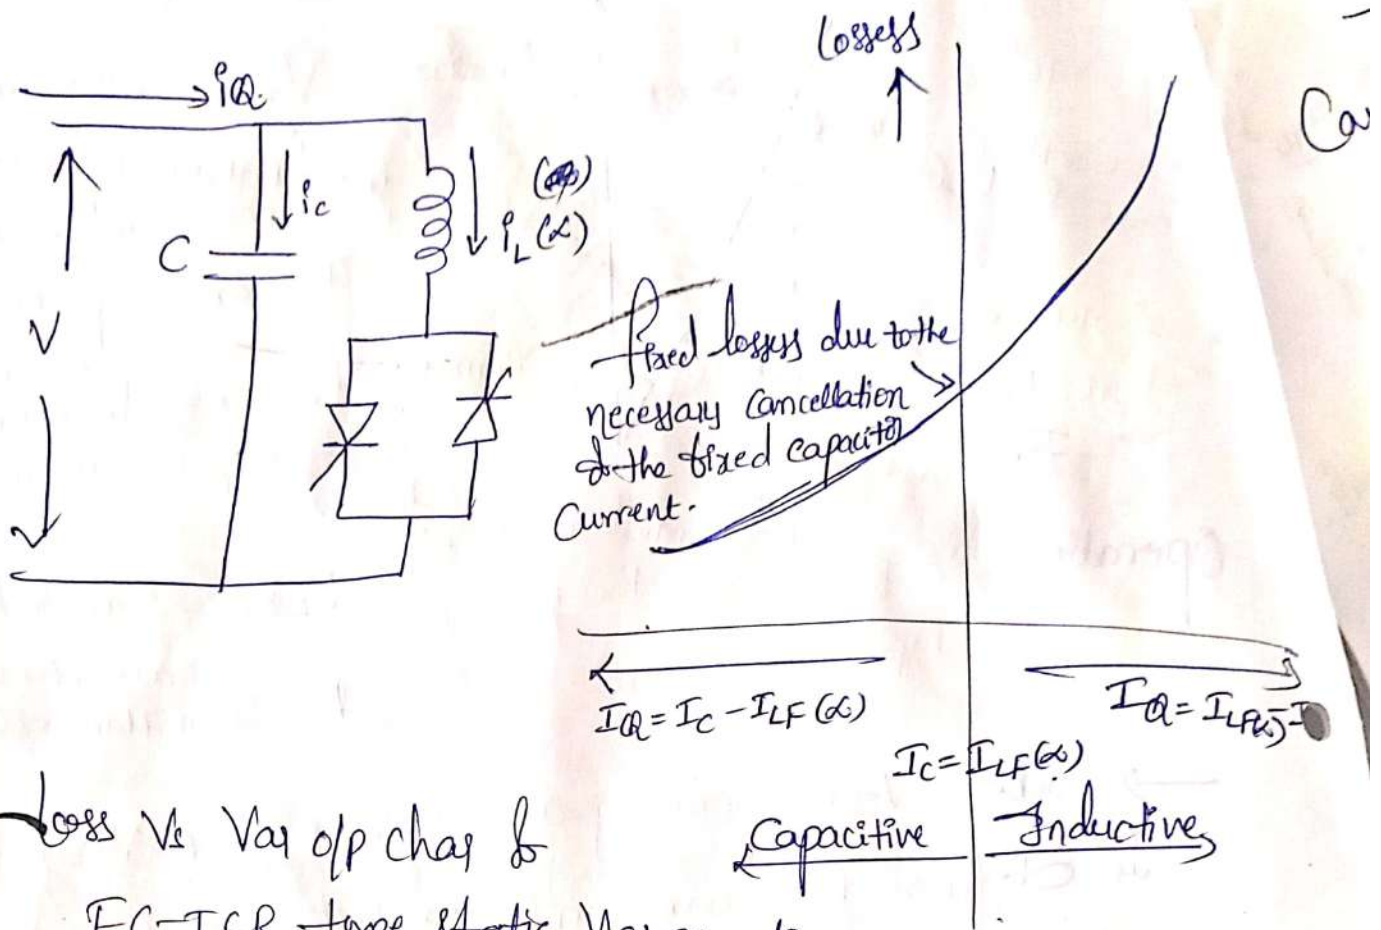 iQ
V
C
ic
iL (α)
Lossess
Ca
fixed lossess due to the
necessary Cancellation
of the fixed capacitor
Current.
IQ = IC - ILF (α)
IQ = ILF(α) - I
IC = ILF(α)
Capacitive
Inductive
Loss Vs Var o/p char of
FC-TCR type static Var